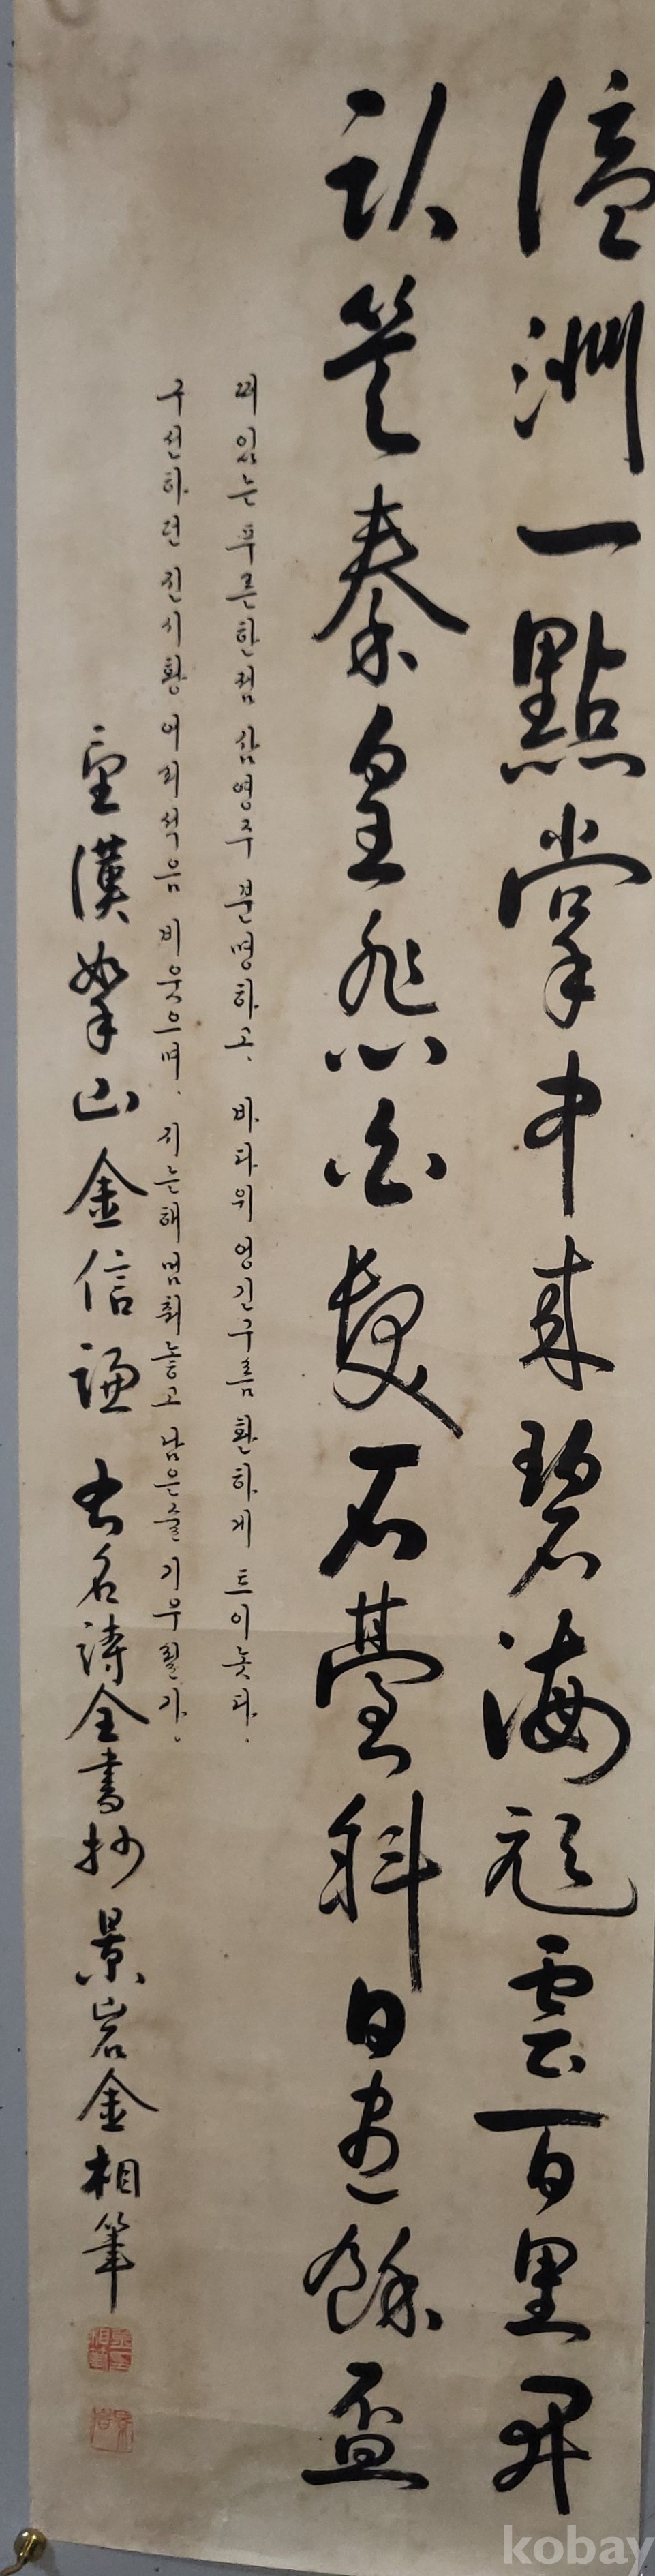 瀛洲一點掌中來碧海彩雲百里開
臥笑秦皇愁白髮石臺斜日盡餘盃
떠있는 푸른한점 삼영주 분명하고, 바다위 엉긴구름 환하게 트이놋다.
구선하던 진시황 어리석음 비웃으며, 지는해 멈춰놓고 남은술 기우릴가.
望漢拏山 金信謙 古名詩全書抄 景岩金相筆
kobay